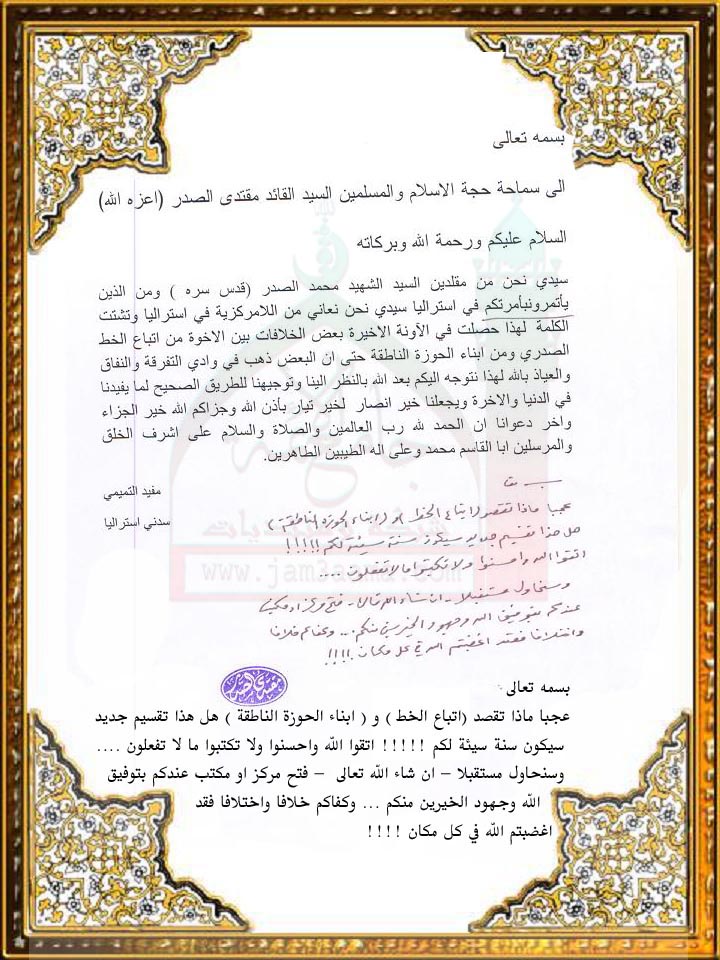 بسمه تعالى
الى سماحة حجة الاسلام والمسلمين السيد القائد مقتدى الصدر (اعزه الله)
السلام عليكم ورحمة الله وبركاته
سيدي نحن من مقلدين السيد الشهيد محمد الصدر (قدس سره ) ومن الذين
يأتمرونبأمرتكم في استراليا سيدي نحن نعاني من اللامركزية في استراليا وتشتت
الكلمة لهذا حصلت في الآونة الاخيرة بعض الخلافات بين الاخوة من اتباع الخط
الصدري ومن ابناء الحوزة الناطقة حتى ان البعض ذهب في وادي التفرقة والنفاق
والعياذ بالله لهذا نتوجه اليكم بعد الله بالنظر الينا وتوجيهنا للطريق الصحيح لما يفيدنا
في الدنيا والاخرة ويجعلنا خير انصار لخير تيار بأذن الله وجزاكم الله خير الجزاء
واخر دعوانا ان الحمد لله رب العالمين والصلاة والسلام على اشرف الخلق
والمرسلين ابا القاسم محمد وعلى اله الطيبين الطاهرين.
مفيد التميمي
سدني استراليا
عجبا ماذا تقصد (اتباع الخط) و (ابناء الحوزة الناطقة)
هل هذا تقسيم جديد سيكون سنة سيئة لكم !!!!!
اتقوا الله واحسنوا ولا تكتبوا ما لا تفعلون ....
وسنحاول مستقبلا - ان شاء الله تعالى - فتح مركز او مكتب
عندكم بتوفيق الله وجهود الخيرين منكم ... وكفاكم خلافا
واختلافا فقد اغضبتم الله في كل مكان !!!!
www.jam3aama.com
بسمه تعالى
عجبا ماذا تقصد (اتباع الخط ) و ( ابناء الحوزة الناطقة ) هل هذا تقسيم جديد
سيكون سنة سيئة لكم !!!!! اتقوا الله واحسنوا ولا تكتبوا ما لا تفعلون ....
وسنحاول مستقبلا – ان شاء الله تعالى – فتح مركز او مكتب عندكم بتوفيق
الله وجهود الخيرين منكم ... وكفاكم خلافا واختلافا فقد
اغضبتم الله في كل مكان !!!!